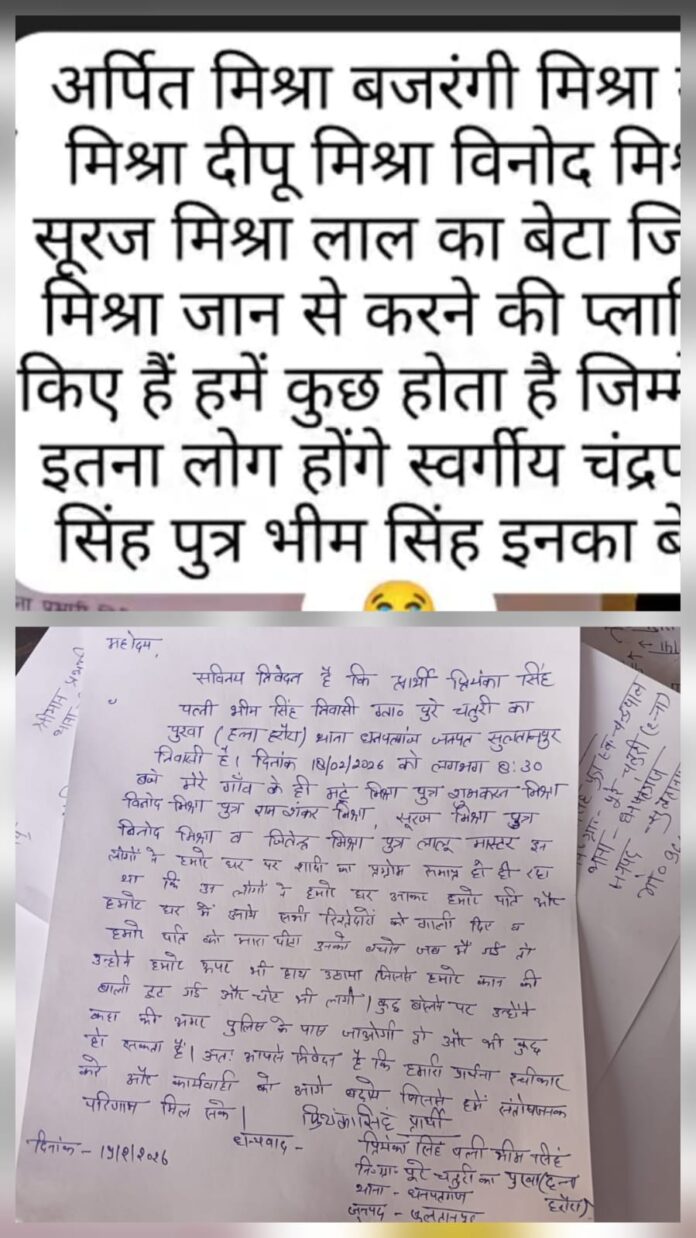 अर्पित मिश्रा बजरंगी मिश्रा
मिश्रा दीपू मिश्रा विनोद
सूरज मिश्रा लाल का बेटा
मिश्रा जान से करने की
किए हैं हमें कुछ होता है
इतना लोग होंगे स्वर्गीय
सिंह पुत्र भीम सिंह इनका
महोदय,
सविनय निवेदन है कि प्रार्थी प्रियंका सिंह
पत्नी भीम सिंह निवासी ग्रा० पुरे चतुरी का
पुरवा (हला हरौरा) थाना धनपतगंज जनपद सुल्तानपुर
निवासी है। दिनांक 18/02/2026 को लगभग 8:30
बजे मेरे गाँव के ही मिश्रा पुत्र रामकरन मिश्रा
विनोद मिश्रा पुत्र राम शंकर मिश्रा, सूरज मिश्रा पुत्र
विनोद मिश्रा व जितेन्द्र मिश्रा पुत्र लालू मास्टर इन
लोगों ने हमारे घर पर शादी का प्रोग्राम समाप्त हो ही रहा
था कि उन लोगों ने हमारे घर आकर हमारे पति और
हमारे घर में आये सभी रिश्तेदारों को गाली दिए व
हमारे पति को मारा पीटा उनको बचाने जब मैं गई तो
उन्होंने हमारे ऊपर भी हाथ उठाया जिससे हमारे कान की
बाली टूट गई और चोट भी लगी। कुछ बोलने पर उन्होंने
कहा की अगर पुलिस के पास जाओगी तो और भी कुछ
हो सकता है। अतः आपसे निवेदन है कि हमारी प्रार्थना स्वीकार
करे और कार्यवाही को आगे बढ़ाये जिससे हमें संतोषजनक
परिणाम मिल सके।
धन्यवाद -
प्रियंका सिंह प्रार्थी
दिनांक - 19/2/2026
प्रियंका सिंह पत्नी भीम सिंह
नि-ग्रा- पुरे चतुरी का पुरवा (हला
हरौरा)
थाना - धनपतगंज
जनपद - सुलतानपुर